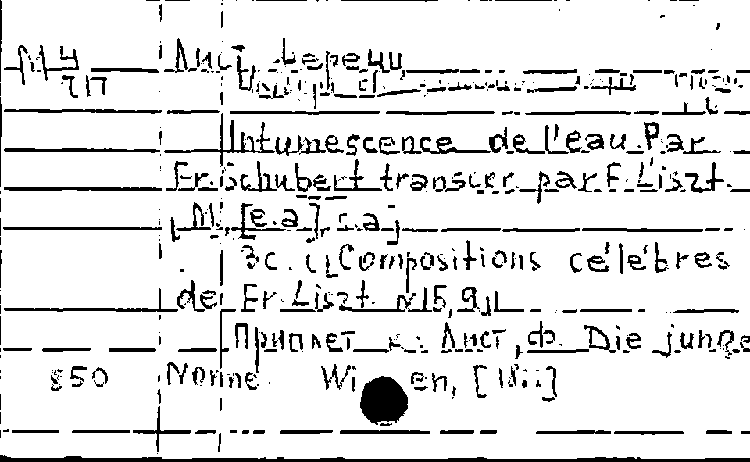 М 4 Лист, Ференц
717
Intumescence de l'eau. Par
Fr. Schubert transcr. par F. Liszt.
M., [e.a], s.a.]
3с. (Compositions célèbres
de Fr. Liszt. №15, 9)
Приплет к: Лист, Ф. Die junge
850 Nonne. Wien, [18..]